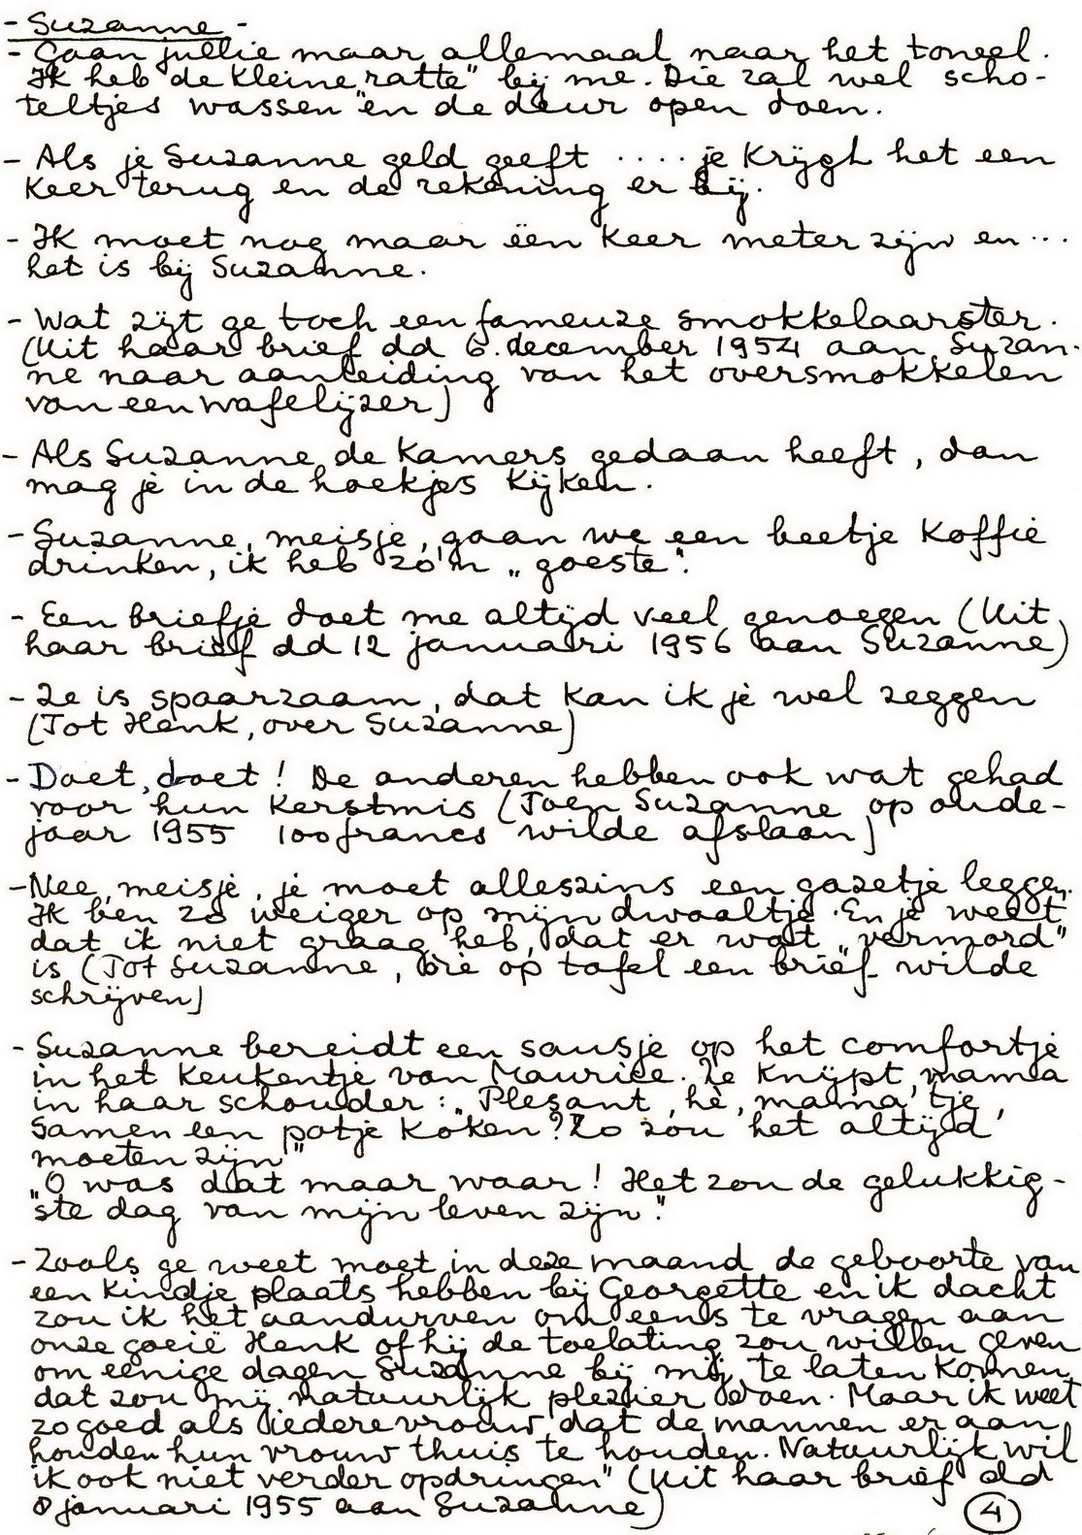 - Suzanne -
- Gaan jullie maar allemaal naar het toneel.
Ik heb de kleine „ratte" bij me. Die zal wel scho-
teltjes wassen en de deur open doen.
- Als je Suzanne geld geeft .... je krijgt het een
keer terug en de rekening er bij.
- Ik moet nog maar ëen keer meter zijn en ...
het is bij Suzanne.
- Wat zijt ge toch een fameuze smokkelaarster.
(Uit haar brief dd 6. december 1954 aan Suzan-
ne naar aanleiding van het oversmokkelen
van een wafelijzer)
- Als Suzanne de kamers gedaan heeft, dan
mag je in de hoekjes kijken.
- Suzanne, meisje, gaan we een beetje koffie
drinken, ik heb zo'n „goeste".
- Een briefje doet me altijd veel genoegen (Uit
haar brief dd 12 januari 1956 aan Suzanne)
- Ze is spaarzaam, dat kan ik je wel zeggen
(Tot Henk, over Suzanne)
- Doet, doet! De anderen hebben ook wat gehad
voor hun kerstmis (Toen Suzanne op oude-
jaar 1955 100 francs wilde afslaan)
- Nee, meisje, je moet alleszins een gazetje leggen.
Ik ben zo weiger op mijn dwaaltje. En je weet
dat ik niet graag heb, dat er wat „vermord"
is (Tot Suzanne, die op tafel een brief wilde
schrijven)
- Suzanne bereidt een sausje op het comfortje
in het keukentje van Maurice. Ze knijpt mama
in haar schouder: „Plesant, hè, mama'tje,
samen een potje koken? Zo zou het altijd
moeten zijn"
„O was dat maar waar! Het zou de gelukkig-
ste dag van mijn leven zijn".
- Zoals ge weet moet in deze maand de geboorte van
een kindje plaats hebben bij Georgette en ik dacht
zou ik het aandurven om eens te vragen aan
onze goeië Henk of hij de toelating zou willen geven
om eenige dagen Suzanne bij mij te laten komen,
dat zou mij natuurlijk plezier doen. Maar ik weet
zo goed als iedere vrouw dat de mannen er aan
houden hun vrouw thuis te houden. Natuurlijk wil
ik ook niet verder opdringen" (Uit haar brief dd
8 januari 1955 aan Suzanne)
4